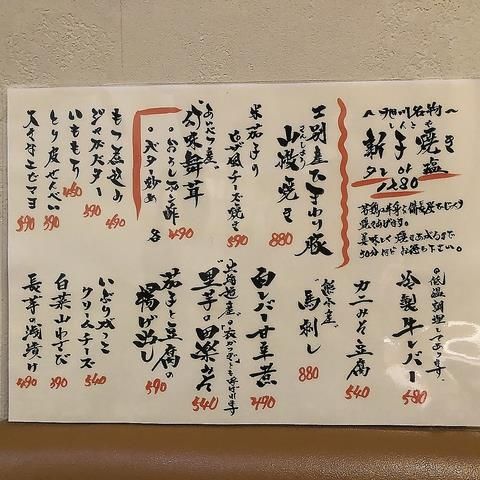 〜旭川名物〜
しんこ
新子焼き
タレor塩
1280
若鶏の半身を備長炭でじっくり
焼きあげます。
美味しく焼きあがるまで
30分ほどお待ち下さい。
士別産ひまわり豚
さんしょう
山椒焼き
880
米茄子の
ピザ風チーズ焼き
590
あいべつ産
吟味舞茸
・おろしポン酢
・バター炒め
各490
もつ煮込み
590
ジャガバター
490
いももち
450
とり皮せんべい
390
大きなエビマヨ
590
○低温調理してあります。
冷製牛レバー
580
カニみそ豆腐
540
熊本産
馬刺し
880
白レバー甘辛煮
490
北海道産
里芋の田楽みそ
540
茄子と豆腐の
揚げ出し
590
いぶりがっこ
クリームチーズ
540
白菜山わさび
390
長芋の浅漬け
490